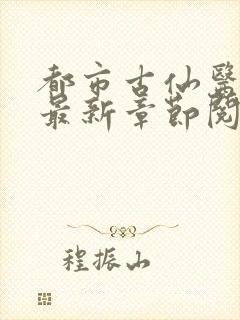 都市古仙醫
最新章節閱
程振山